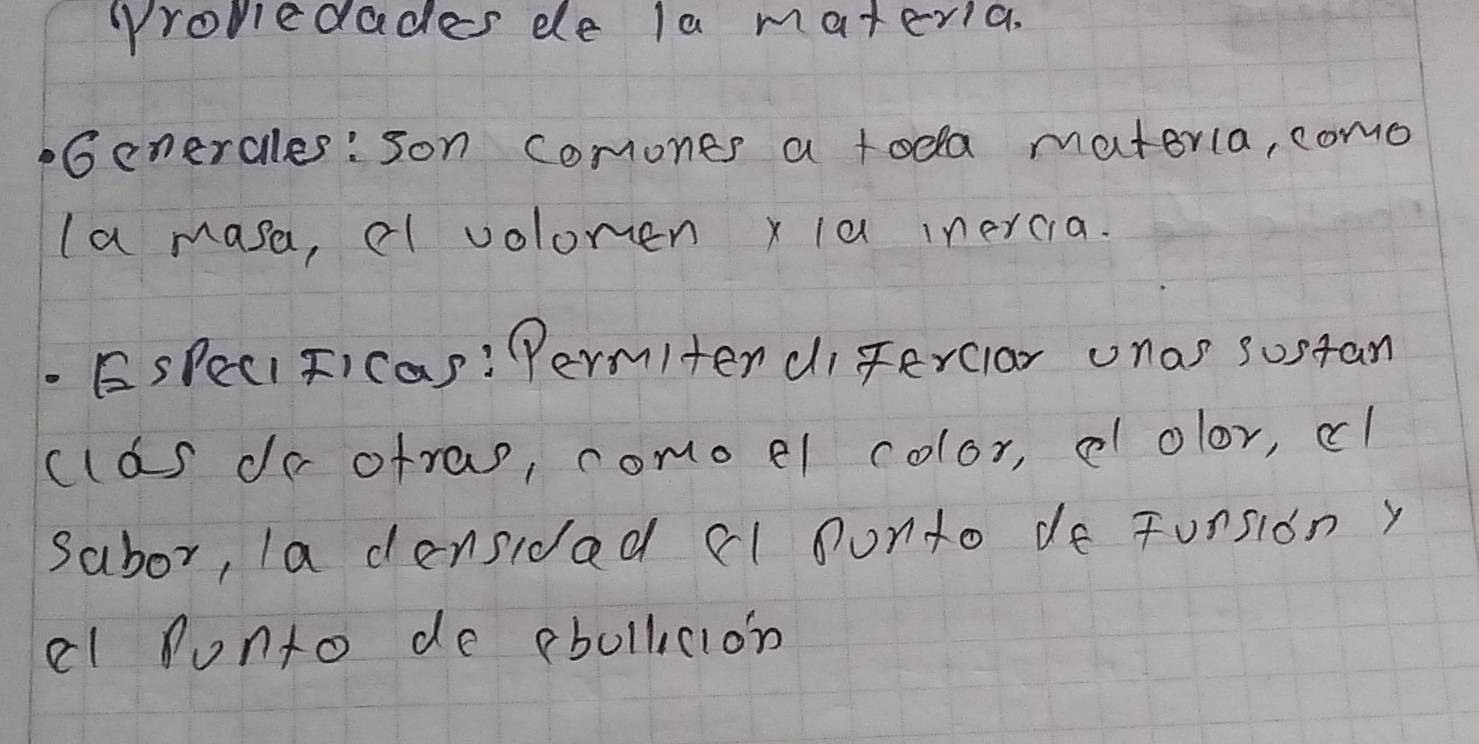 Propiedades de la materia.
•Generales: son comunes a toda materia, como
la masa, el volumen y la inercia.
• Específicas: Permiten diferciar unas sustan
cias de otras, como el color, el olor, el
sabor, la densidad el punto de funsión y
el punto de ebullición